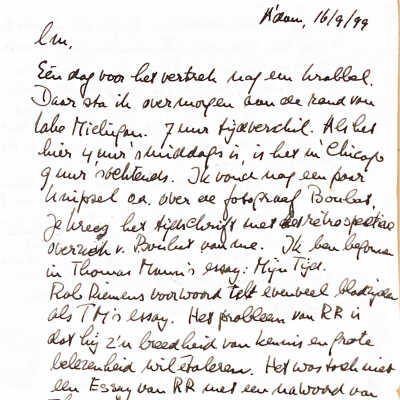 A'dam, 16/9/99
Lm.
Eén dag voor het vertrek nog een krabbel.
Daar sta ik overmorgen aan de rand van
Lake Michigan. 7 uur tijdverschil. Als het
hier 4 uur 's middags is, is het in Chicago
9 uur 's ochtends. Ik vond nog een paar
knipsel oa. over de fotograaf Boubat.
Je kreeg het tijdschrift met retrospectieve
overzicht v. Boubat van me. Ik ben begonnen
in Thomas Mann's essay: Mijn Tijd.
Rob Riemens voorwoord telt evenveel bladzijden
als TM's essay. Het probleem van RR is
dat hij z'n breedheid van kennis en grote
belezenheid wil etaleren. Het was toch niet
een Essay van RR met een nawoord van